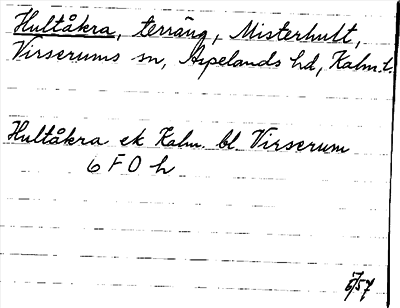 Hultåkra, terräng, Misterhult,
Virserums sn, Aspelands hd, Kalm. l.
Hultåkra ek Kalm. bl Virserum
6 F 0 h